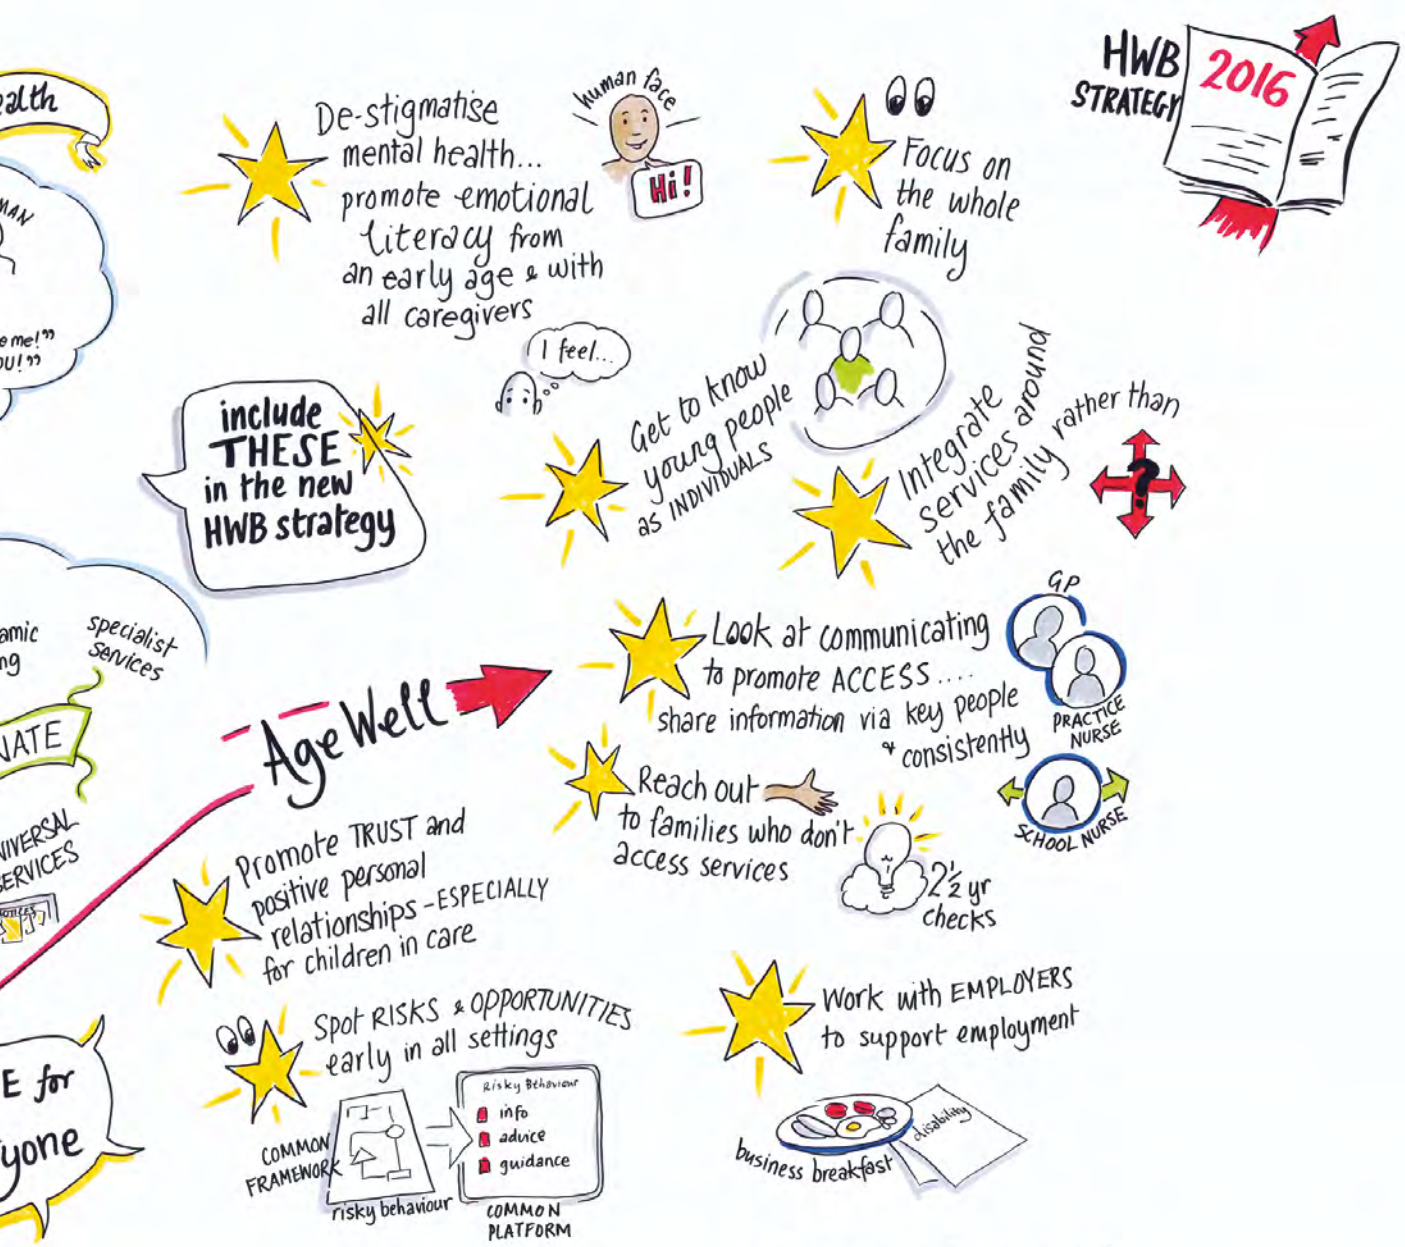 ealth
MAN
e me!”
OU!”
De-stigmatise
mental health...
promote emotional
literacy from
an early age & with
all caregivers
human face
Hi!
I feel...
Focus on
the whole
family
HWB
STRATEGY
2016
include
THESE
in the new
HWB strategy
Get to know
young people
as INDIVIDUALS
Integrate
services around
the family rather than
?
amic
ng
specialist
services
NATE
NIVERSAL
SERVICES
Age Well
Look at communicating
to promote ACCESS ....
share information via key people
& consistently
GP
PRACTICE
NURSE
SCHOOL NURSE
Reach out
to families who don't
access services
2½ yr
checks
Promote TRUST and
positive personal
relationships - ESPECIALLY
for children in care
Spot RISKS & OPPORTUNITIES
early in all settings
COMMON
FRAMEWORK
risky behaviour
Risky Behaviour
info
advice
guidance
COMMON
PLATFORM
Work with EMPLOYERS
to support employment
business breakfast
disability
E for
yone